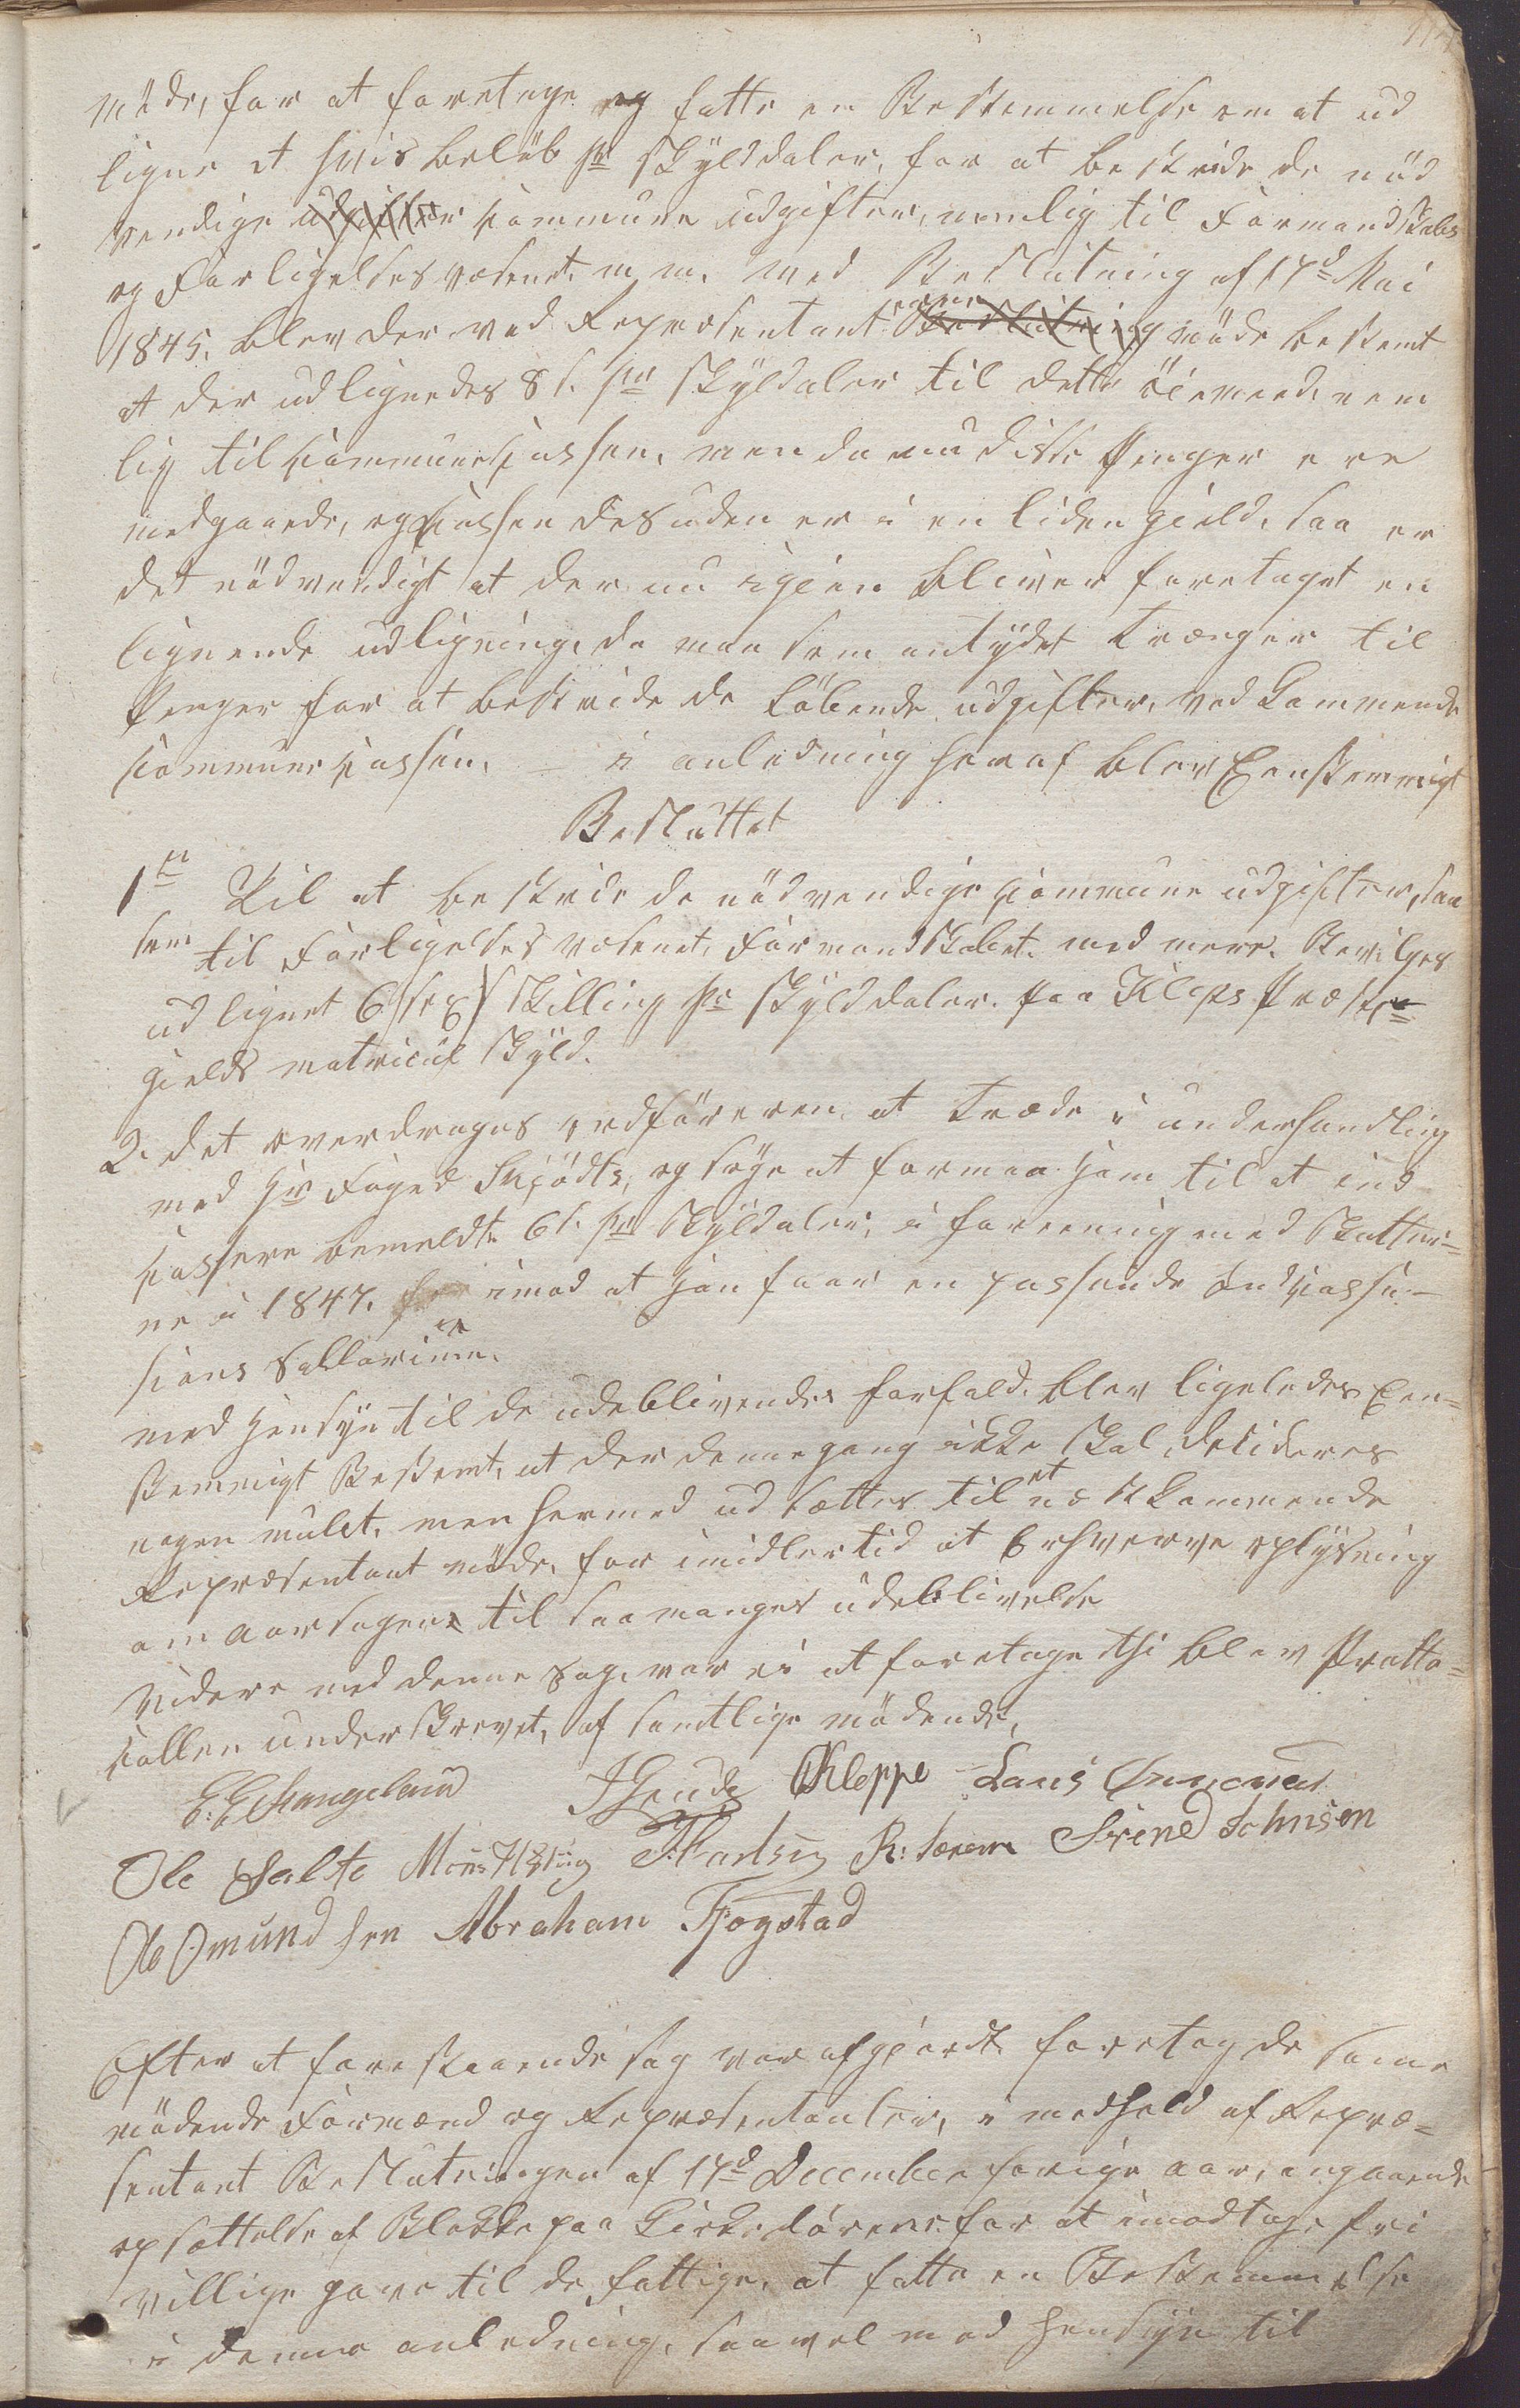 möde, for at foretage og fatte en Bestemmelse om at ud
ligne et hvis beløb pr skylddaler, for at bestride de nöd
vendige udgifter Commune udgifter, nemlig til Formandskabs
og Forligelsesvæsenet m. m. med Beslutning af 17d Mai
1845. blev der ved Repræsentant Beslutning möde bestemt
at der udlignedes 8 s. pr skyldaler til dette öiemeed, nem
lig til Communekassen, men da nu disse Penger ere
medgaaede, og Cassen desuden er i en liden gield, saa er
det nödvendigt at der nu igien bliver foretaget en
lignende udligning, da man som antydet trænger til
Penger for at bestride de Löbende udgifter, vedkommende
Commune Cassen. – i anledning heraf blev Eenstemmigt
Besluttet
1te Til at bestride de nödvendige Commune udgifter, saa
som til Forligelsesvæsenet, Formandskabet med mere. Bevilges
udlignet 6 (sex) skilling pr skylddaler. paa Kleps Præste
gields matricul skyld.
2. det overdrages ordföreren at træde i underhandling
med Hr Foged Skjödts, og söge at formaa ham til at ind
Cassere bemeldte 6 s. pr skyldaler, i foreening med Skatter=
ne i 1847. imod at han faar en passende indkassa–
sions Sallarium.
med hensyn til de udeblivendes forfald. blev ligeledes Een=
stemmigt Bestemt, at der dennegang ikke skal desideres
nogen mulct, men hermed udsættes til et næstkommende
Repræsentant möde, for imidlertid at Erhverve oplysning
om aarsagen til saa manges udeblivelse
Videre med denne Sag, var ei at foretage thi blev Protto=
kollen underskrevet, af samtlige mödende,
E. E. Hangeland J Gjeude OKleppe Lars
Ole Salte Mons R: Særem Svend Johnsen
Ole Omundsen Abraham Fjogstad
Efter at forestaaende sag var afgjordt foretog de samme
mödende Formænd og Repræsentanter, i medhold af Repræ=
sentant Beslutningen af 17d December forige aar, angaaende
opsættelse af Blokke paa Kirkedörene for at imodtage fri
villige gave til de fattige, at fatte en Bestemmelse
i denne anledning, saavel med hensyn til